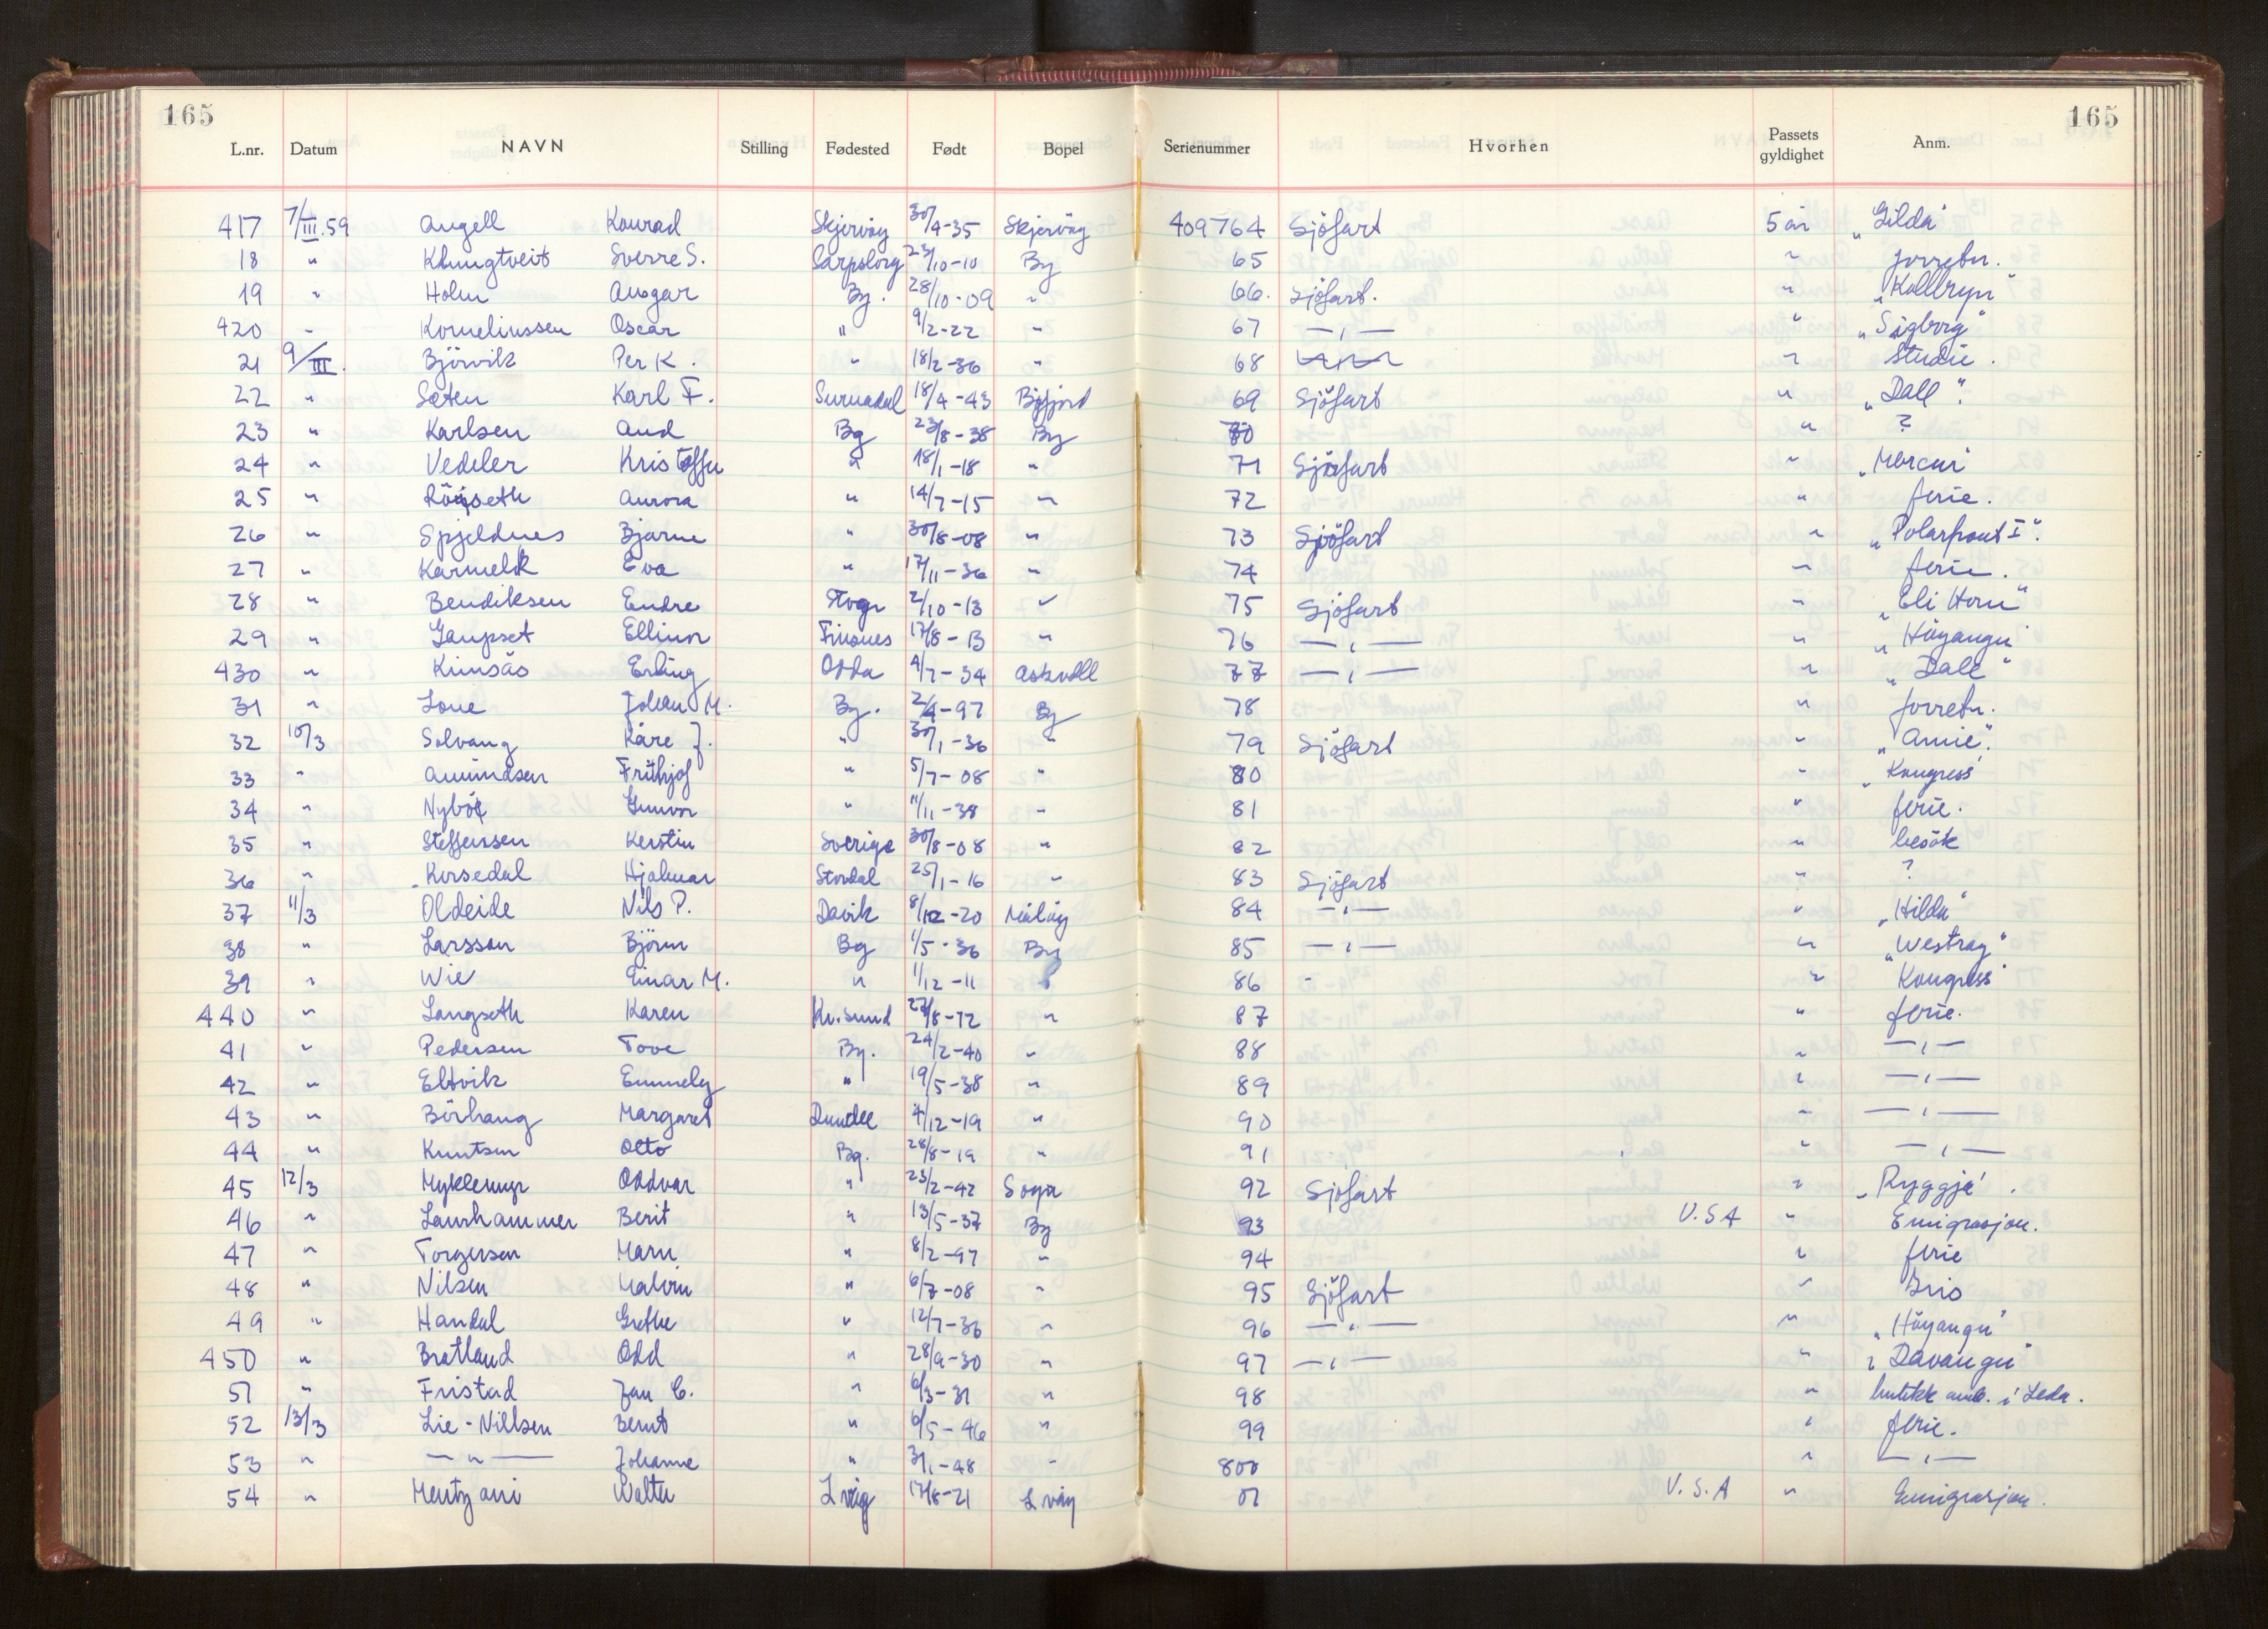 165 165
L.nr. Datum NAVN Stilling Fødested Født Bopel Serienummer Hvorhen Passets gyldighet Anm.
417 7/III.59 Angell Konrad Skjervöy 30/4-35 Skjervöy 409764 Sjöfart 5 år "Gilda"
18 " Klungtveit Sverre S. Sarpsborg 23/10-10 By 65 " forretn.
19 " Holm Ansgar By. 28/10-09 " 66. Sjöfart. " "Kollbryn"
420 " Korneliussen Oscar " 9/2-22 " 67 —"— " "Sigborg"
21 9/III. Björvik Per K. " 18/2-36 " 68 " Studie.
22 " Sæten Karl F. Surnadal 18/4-43 69 Sjöfart " "Dall".
23 " Karlsen Aud Bg 23/8-38 By 70 " ?
24 " Vedeler Kristoffer " 18/1-18 " 71 Sjöfart " "Mercur"
25 " Röyseth Aurora " 14/7-15 " 72 " ferie.
26 " Spjeldnes Bjarne " 30/8-08 " 73 Sjöfart " "Polarfront I".
27 " Karmelk Eva " 17/11-36 " 74 " ferie.
28 " Bendiksen Endre Stvgr 2/10-13 " 75 Sjöfart " "Eli Horn"
29 " Gaupset Ellinor Finnes 17/8-13 " 76 —"— " "Höyanger"
430 " Kinsås Erling Odda 4/7-34 Askvoll 77 —"— " "Dale"
31 " Lone Johan M. By. 2/4-97 By 78 " forretn.
32 10/3 Solvang Kåre J. " 30/1-36 " 79 Sjöfart " "Amie".
33 " Amundsen Frithjof " 5/7-08 " 80 " "Kongress"
34 " Nybö Gunvor " 11/11-38 " 81 " ferie.
35 " Steffensen Kerstin Sverige 30/8-08 " 82 " besök
36 " Korsedal Hjalmar Stordal 25/1-16 " 83 Sjöfart " ?
37 11/3 Oldeide Nils P. Davik 8/12-20 Målöy 84 —"— " "Hilda"
38 " Larsson Björn Bg 1/5-36 By 85 —"— " "Westray"
39 " Wie Einar M. " 1/12-11 86 - " Kongress"
440 " Langseth Karen Kr.sund 27/8-12 " 87 " ferie.
41 " Pedersen Tove By. 24/2-40 " 88 " —"—
42 " Eltvik Emmely " 19/5-38 " 89 " —"—
43 " Börhaug Margaret Dundee 4/12-19 " 90 " —"—
44 " Knutsen Otto Bg. 28/8-19 " 91 " —"—
45 12/3 Myklemyr Oddvar " 23/2-42 Sogn 92 Sjöfart " "Ryggja".
46 " Laurhammer Berit " 13/5-37 By 93 U.S.A " Emigrasjon.
47 " Torgersen Marn " 8/2-97 " 94 " ferie
48 " Nilsen Malvin " 6/7-08 " 95 Sjöfart " Bris
49 " Handal Grethe " 12/7-36 " 96 —"— " "Höyanger"
450 " Bratland Odd " 28/9-30 " 97 —"— " "Davanger"
51 " Fristad Jan C. " 6/3-31 " 98 " butikk i Leda.
52 13/3 Lie-Nillsen Bernt " 6/5-46 " 99 " ferie.
53 " —"— Johanne " 3/1-48 " 800 " —"—
54 " Walter L våg 17/8-21 L våg 01 U.S.A " Emigrasjon.